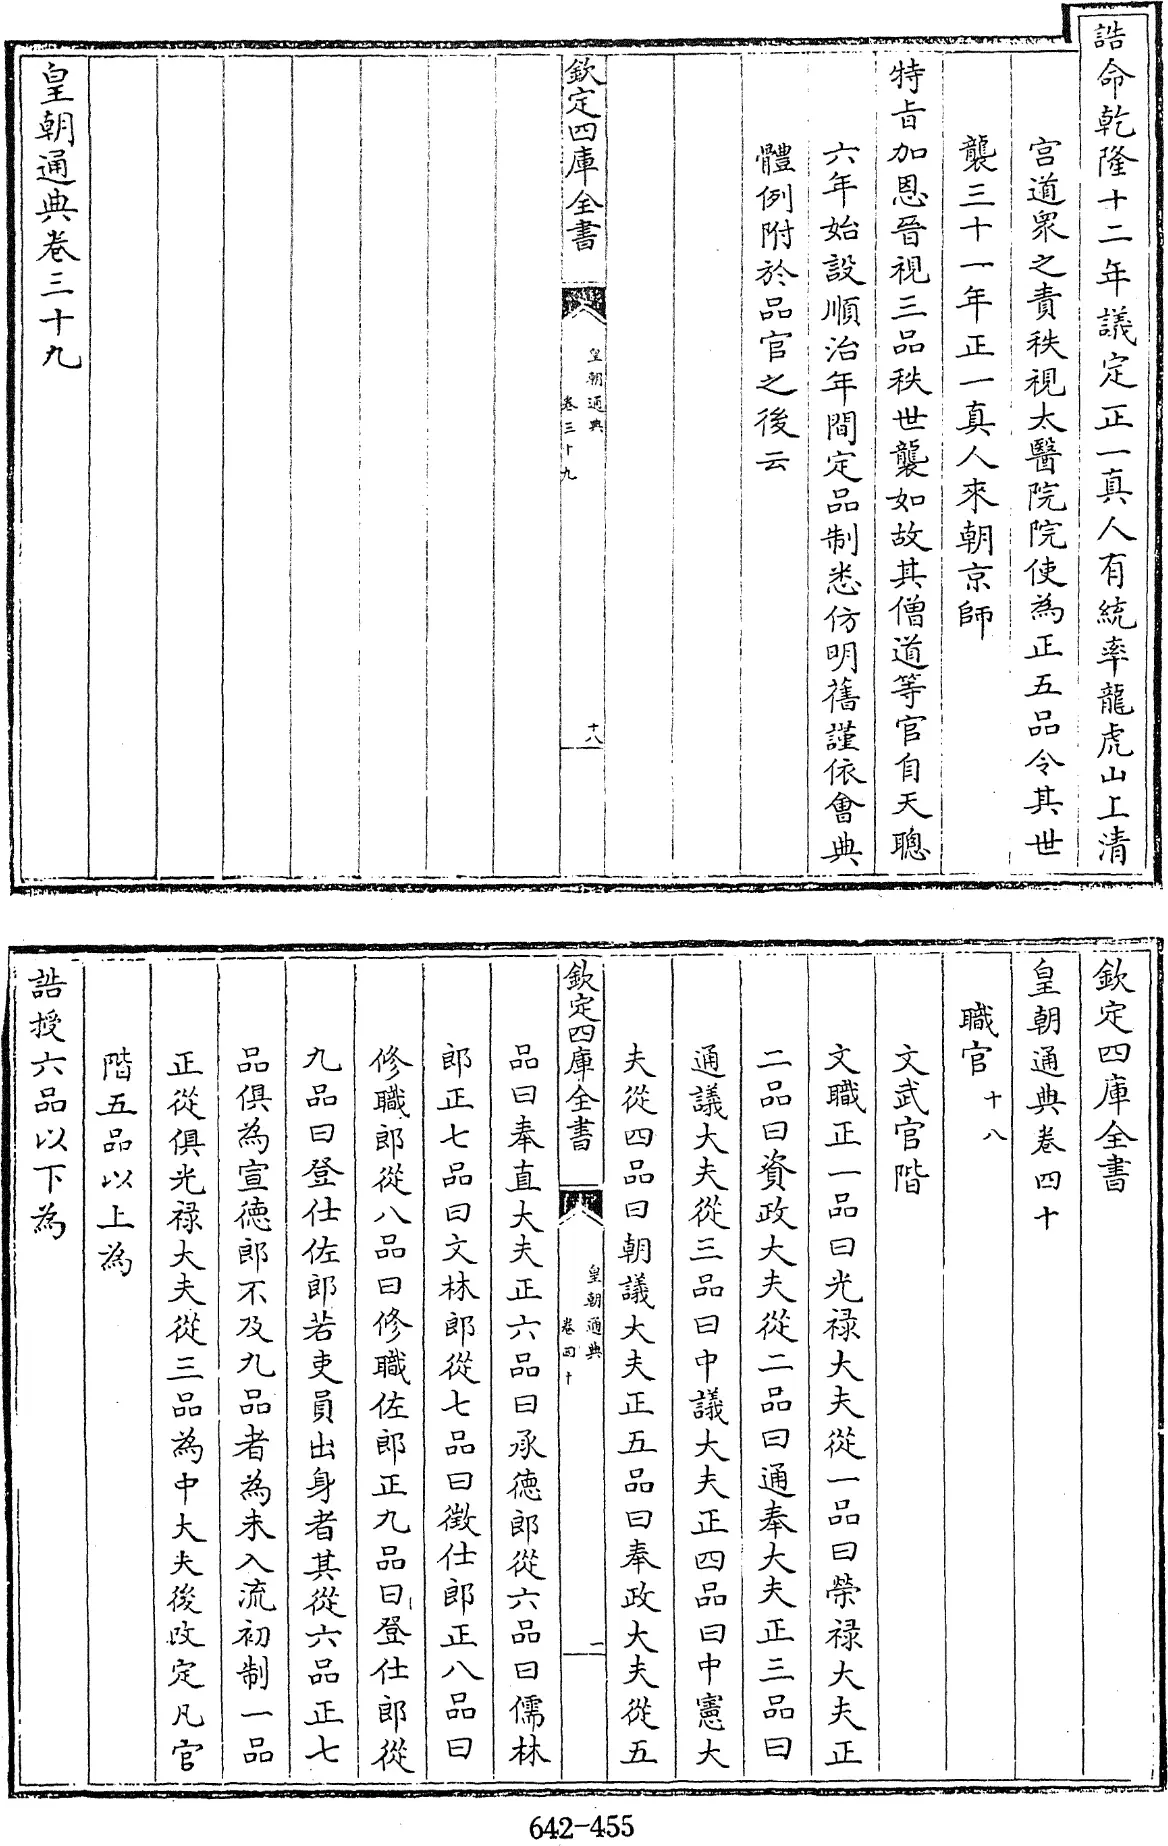 誥命乾隆十二年議定正一真人有統率龍虎山上清
宮道衆之責秩視太醫院院使為正五品令其世
襲三十一年正一真人來朝京師
特旨加恩晉視三品秩世襲如故其僧道等官自天聰
六年始設順治年間定品制悉仿明舊謹依會典
體例附於品官之後云
欽定四庫全書
皇朝通典
卷三十九
十八
皇朝通典卷三十九
欽定四庫全書
皇朝通典卷四十
職官十八
文武官階
文職正一品曰光禄大夫從一品曰榮禄大夫正
二品曰資政大夫從二品曰通奉大夫正三品曰
通議大夫從三品曰中議大夫正四品曰中憲大
夫從四品曰朝議大夫正五品曰奉政大夫從五
欽定四庫全書
皇朝通典
卷四十
二
品曰奉直大夫正六品曰承德郎從六品曰儒林
郎正七品曰文林郎從七品曰徵仕郎正八品曰
修職郎從八品曰修職佐郎正九品曰登仕郎從
九品曰登仕佐郎若吏員出身者其從六品正七
品俱為宣德郎不及九品者為未入流初制一品
正從俱光禄大夫從三品為中大夫後改定凡官
階五品以上為
誥授六品以下為
642-455